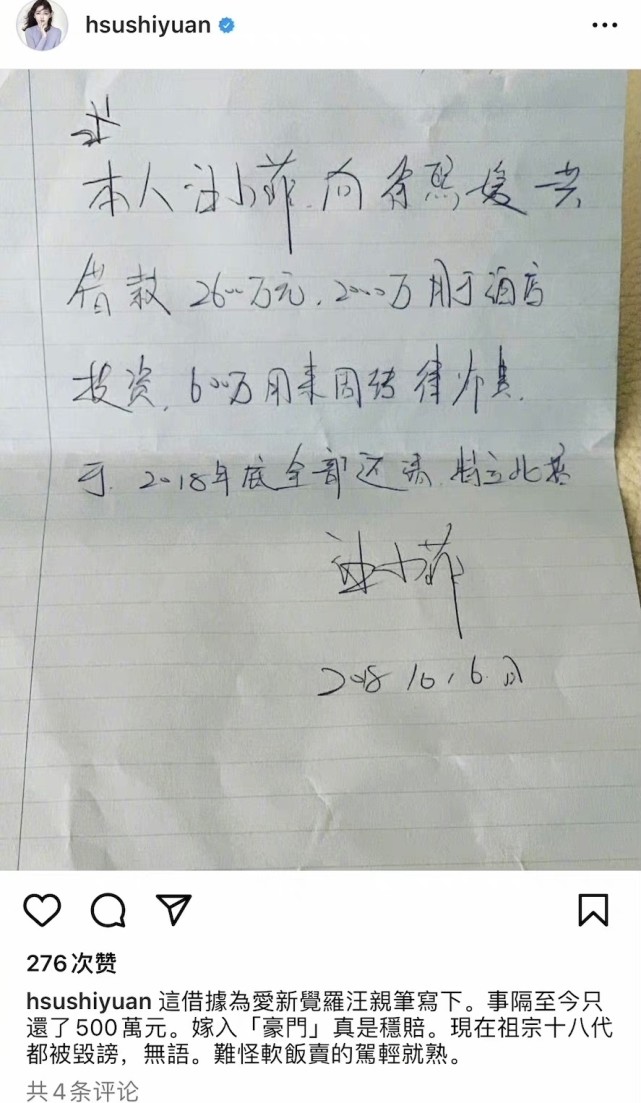 hsushiyuan
本人汪小菲向徐熙媛共
借款2600万元,2000万用于酒店
投资,600万用来周转律师费,
于2018年底全部还清,特立此
汪小菲
2018 10.6.日
276次赞
hsushiyuan 這借據為愛新覺羅汪親筆寫下。事隔至今只
還了500萬元。嫁入「豪門」真是穩賠。現在祖宗十八代
都被毀謗，無語。難怪軟飯賣的駕輕就熟。
共4条评论